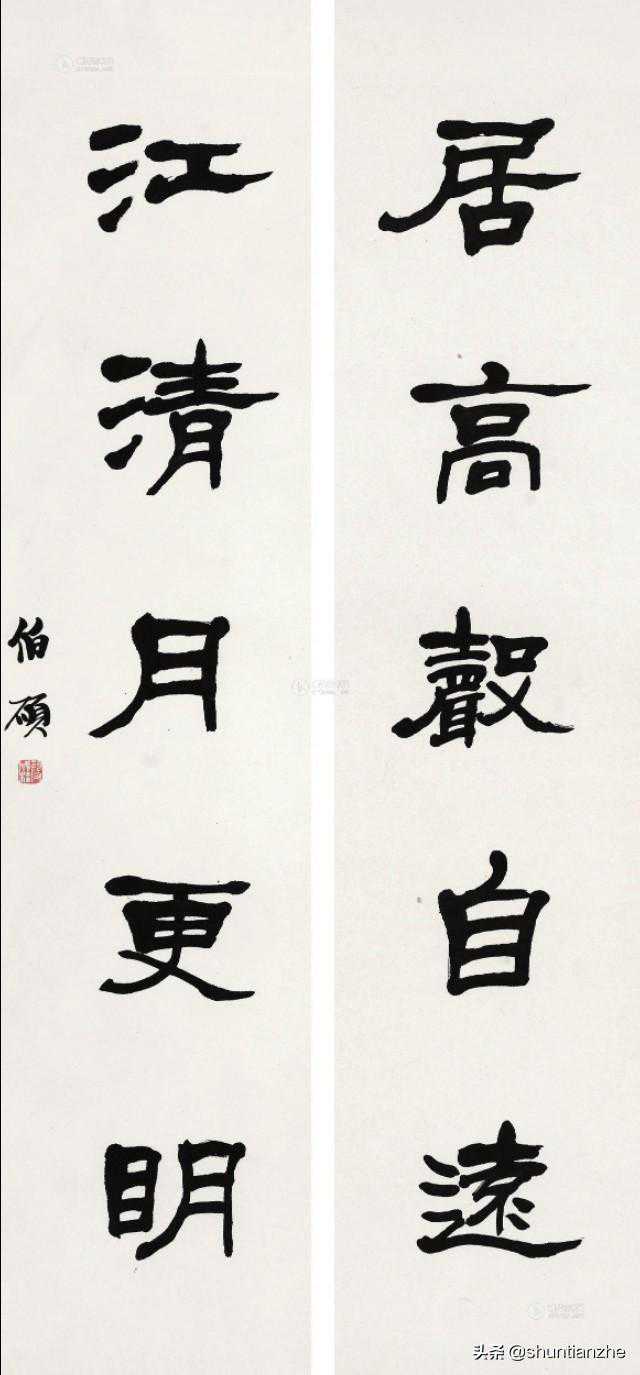 居高聲自遠
江清月更明
伯碩
头条 @shuntianzhe